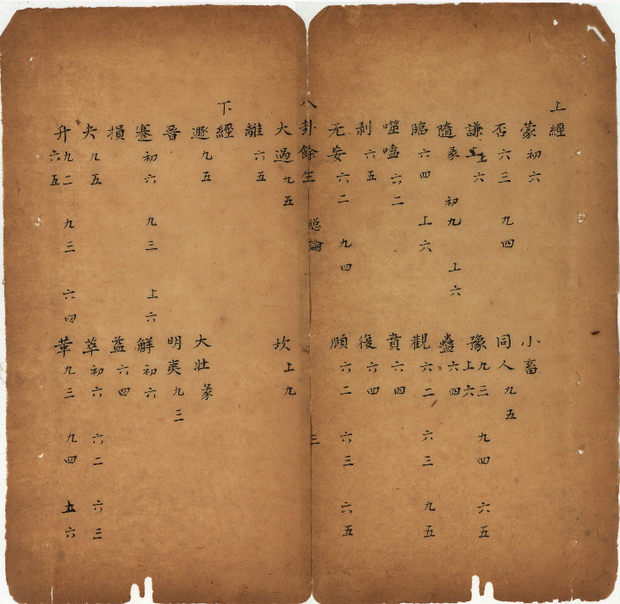 上經
蒙 初六
小畜
否 六三 九四
同人 九五
謙 上六
豫 九三 九四 六五 上六
隨 彖 初九 上六
蠱 六四
臨 六四 上六
觀 六二 六三 九五
噬嗑 六二
賁 六四
剥 六五
復 六四
无妄 六二 九四
頤 六二 六三 六五
八卦餘生 總論 三
大過 九五
坎 上九
離 六五
下經
遯 九五
大壯 彖
晉
明夷 九三
蹇 初六 九三 上六
解 初六
損
益 六四
夬 九五
萃 初六 六二 六三
升 九二 九三 六四 六五
革 九三 九四 上六